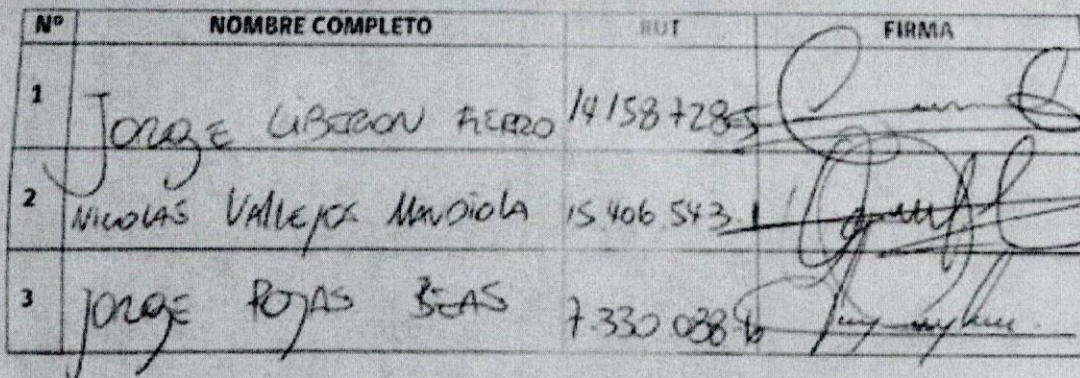 Nº NOMBRE COMPLETO RUT FIRMA
1 JORGE FIERRO 14158728-5
2 NICOLAS VALLEJOS MANDIOLA 15.406.543
3 JORGE ROJAS BEAS 7.330.038